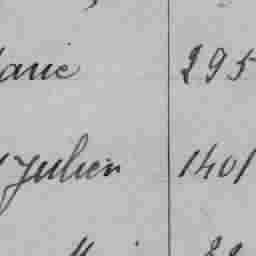 arie 295
Julien 1401